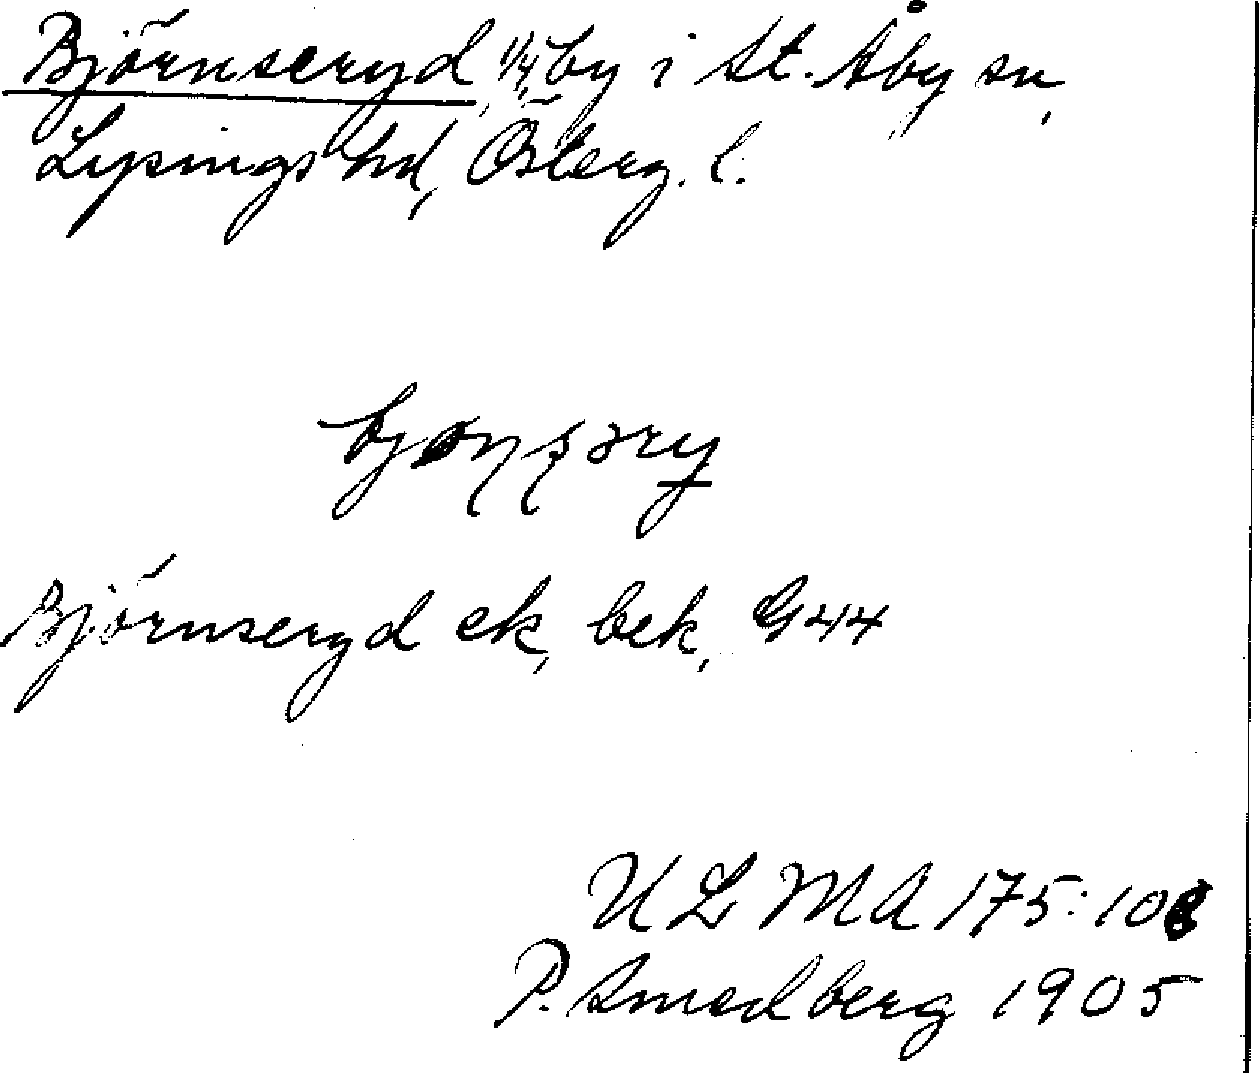 Björnseryd, 1/4, by i St. Åby sn,
Lysings hd, Österg. l.
Björnseryd ek, bek, G44
ULMA 175:108
P. Smedberg 1905